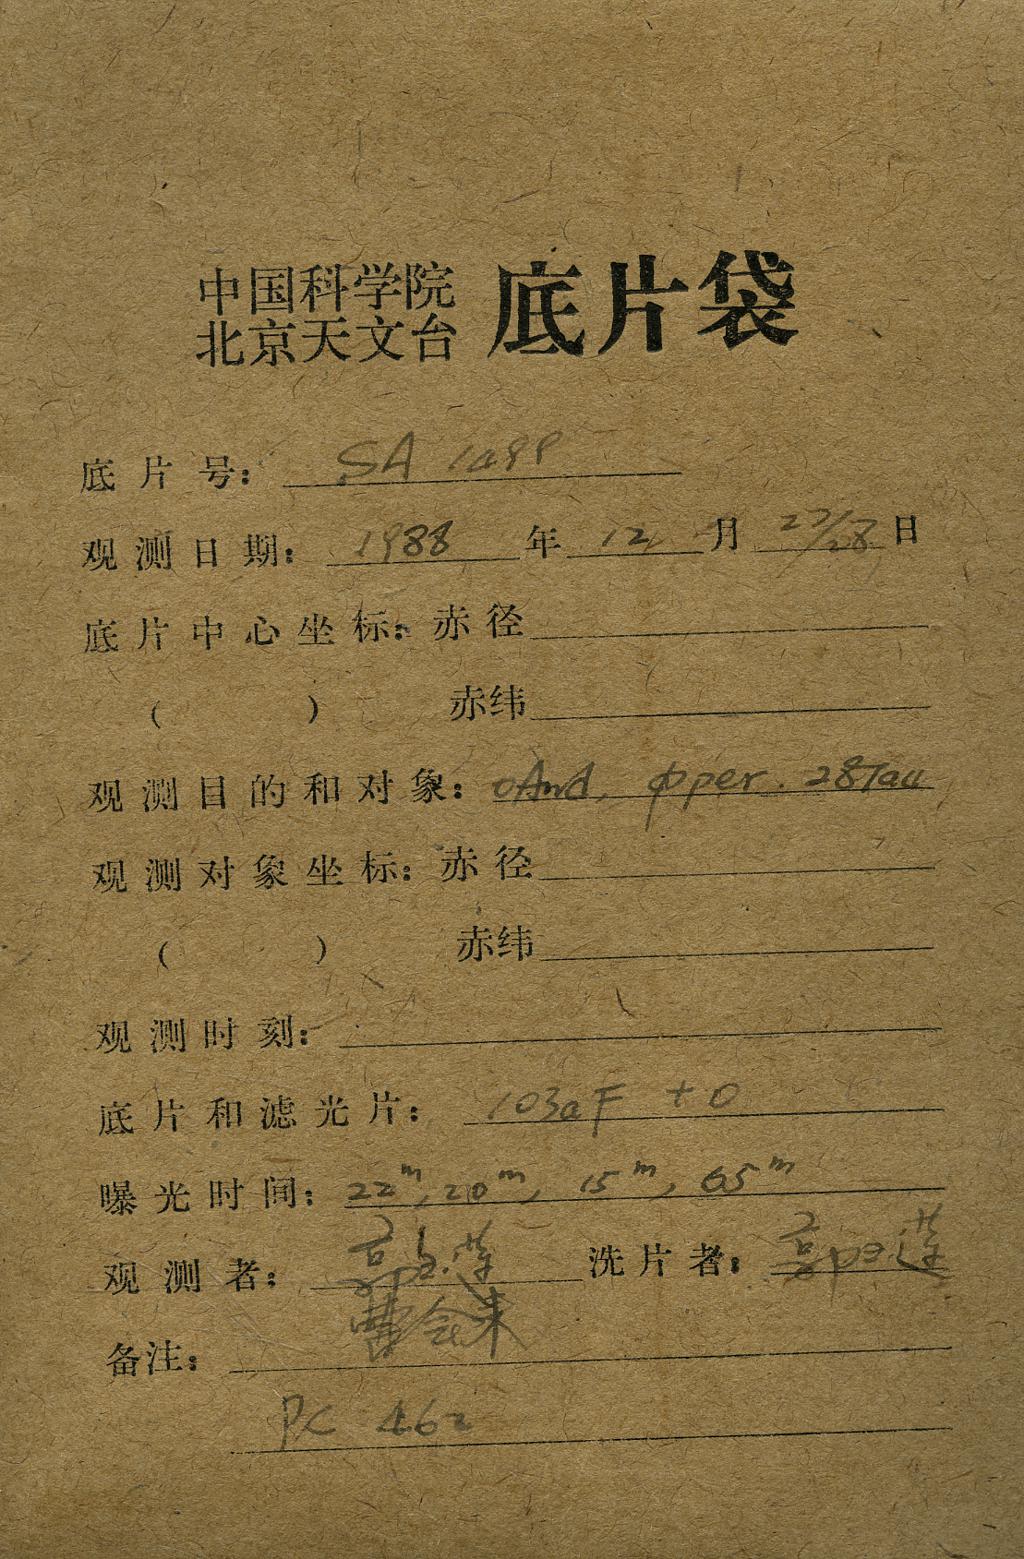 中国科学院
北京天文台 底片袋
底片号: SA 1499
观测日期: 1988 年 12 月 27/28 日
底片中心坐标: 赤径
( ) 赤纬
观测目的和对象: oAnd, φper. 28Tau
观测对象坐标: 赤径
( ) 赤纬
观测时刻:
底片和滤光片: 103aF +0
曝光时间: 22m, 20m, 15m, 65m
观测者: 郭玉莲 洗片者: 郭玉莲
曹会来
备注:
PC 462